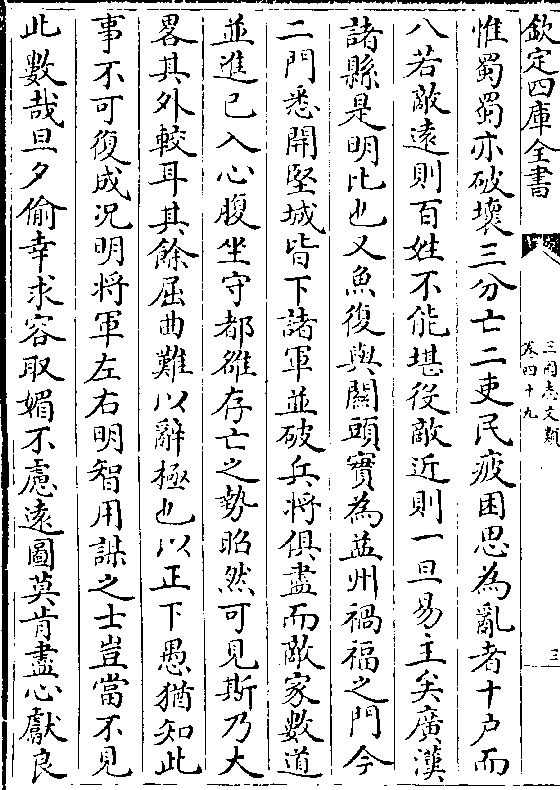 欽定四庫全書
三國志文類
卷四十九
三
惟蜀蜀亦破壞三分亡二吏民疲困思為亂者十户而
八若敵遠則百姓不能堪役敵近則一旦易主矣廣漢
諸縣是明比也又魚復與關頭實為益州禍福之門今
二門悉開堅城皆下諸軍並破兵將俱盡而敵家數道
並進已入心腹坐守都雒存亡之勢昭然可見斯乃大
畧其外較耳其餘屈曲難以辭極也以正下愚猶知此
事不可復成况明將軍左右明智用謀之士豈當不見
此數哉旦夕偷幸求容取媚不慮遠圖莫肯盡心獻良